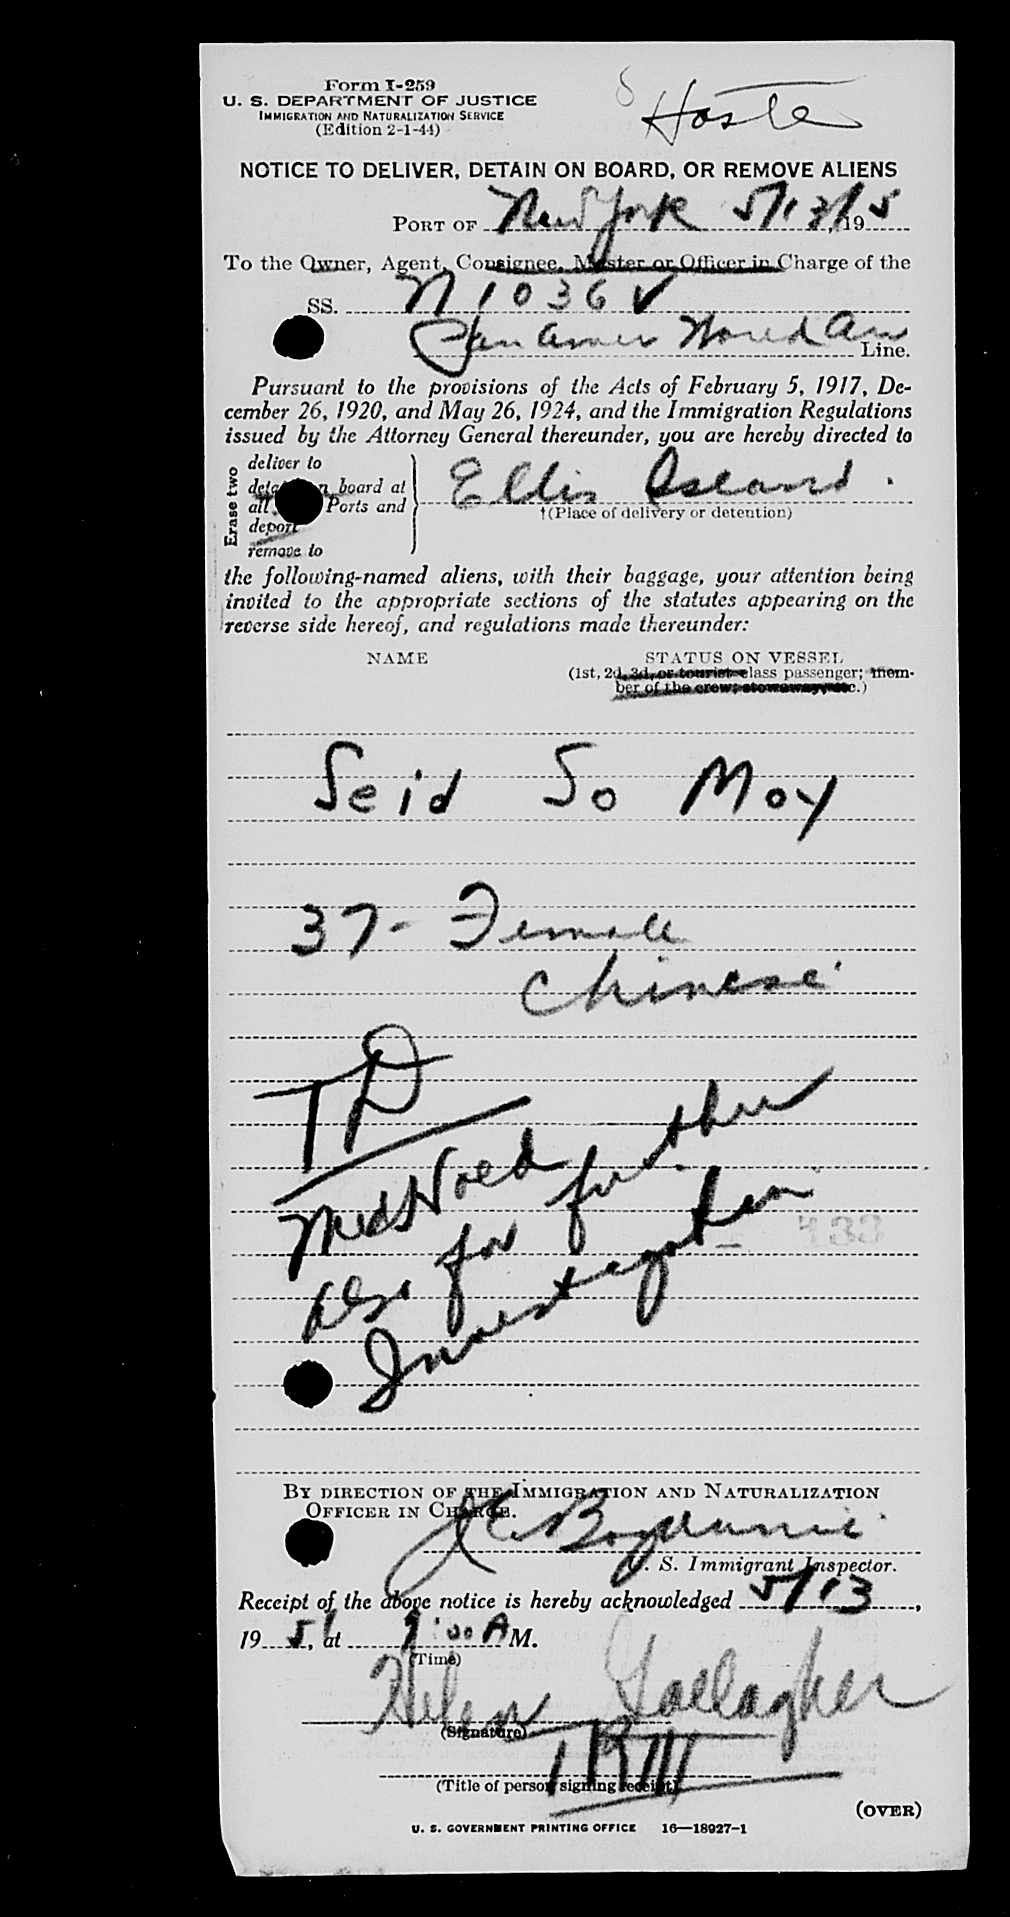 Form I-259
U. S. DEPARTMENT OF JUSTICE
IMMIGRATION AND NATURALIZATION SERVICE
(Edition 2-1-44)
NOTICE TO DELIVER, DETAIN ON BOARD, OR REMOVE ALIENS
PORT OF New York 5/13/195
To the Owner, Agent, Consignee, Master or Officer in Charge of the
SS. N 1036 V
Pan Amer World Air Line.
Pursuant to the provisions of the Acts of February 5, 1917, De-
cember 26, 1920, and May 26, 1924, and the Immigration Regulations
issued by the Attorney General thereunder, you are hereby directed to
Erase two
deliver to
board at
all Ports and
deport
remove to
Ellis Island.
†(Place of delivery or detention)
the following-named aliens, with their baggage, your attention being
invited to the appropriate sections of the statutes appearing on the
reverse side hereof, and regulations made thereunder:
NAME STATUS ON VESSEL
(1st, 2d, 3d, or tourist class passenger; mem-
ber of the crew; stowaway, etc.)
Seid So Moy
37- Female
Chinese
TD
Med Hold
also for further
Investigation
433
BY DIRECTION OF THE IMMIGRATION AND NATURALIZATION
OFFICER IN CHARGE.
U. S. Immigrant Inspector.
Receipt of the above notice is hereby acknowledged 5/13,
1951, at :00 A M.
(Time)
Helen Gallagher
(Signature)
(Title of person signing receipt)
(OVER)
U. S. GOVERNMENT PRINTING OFFICE 16—18927-1